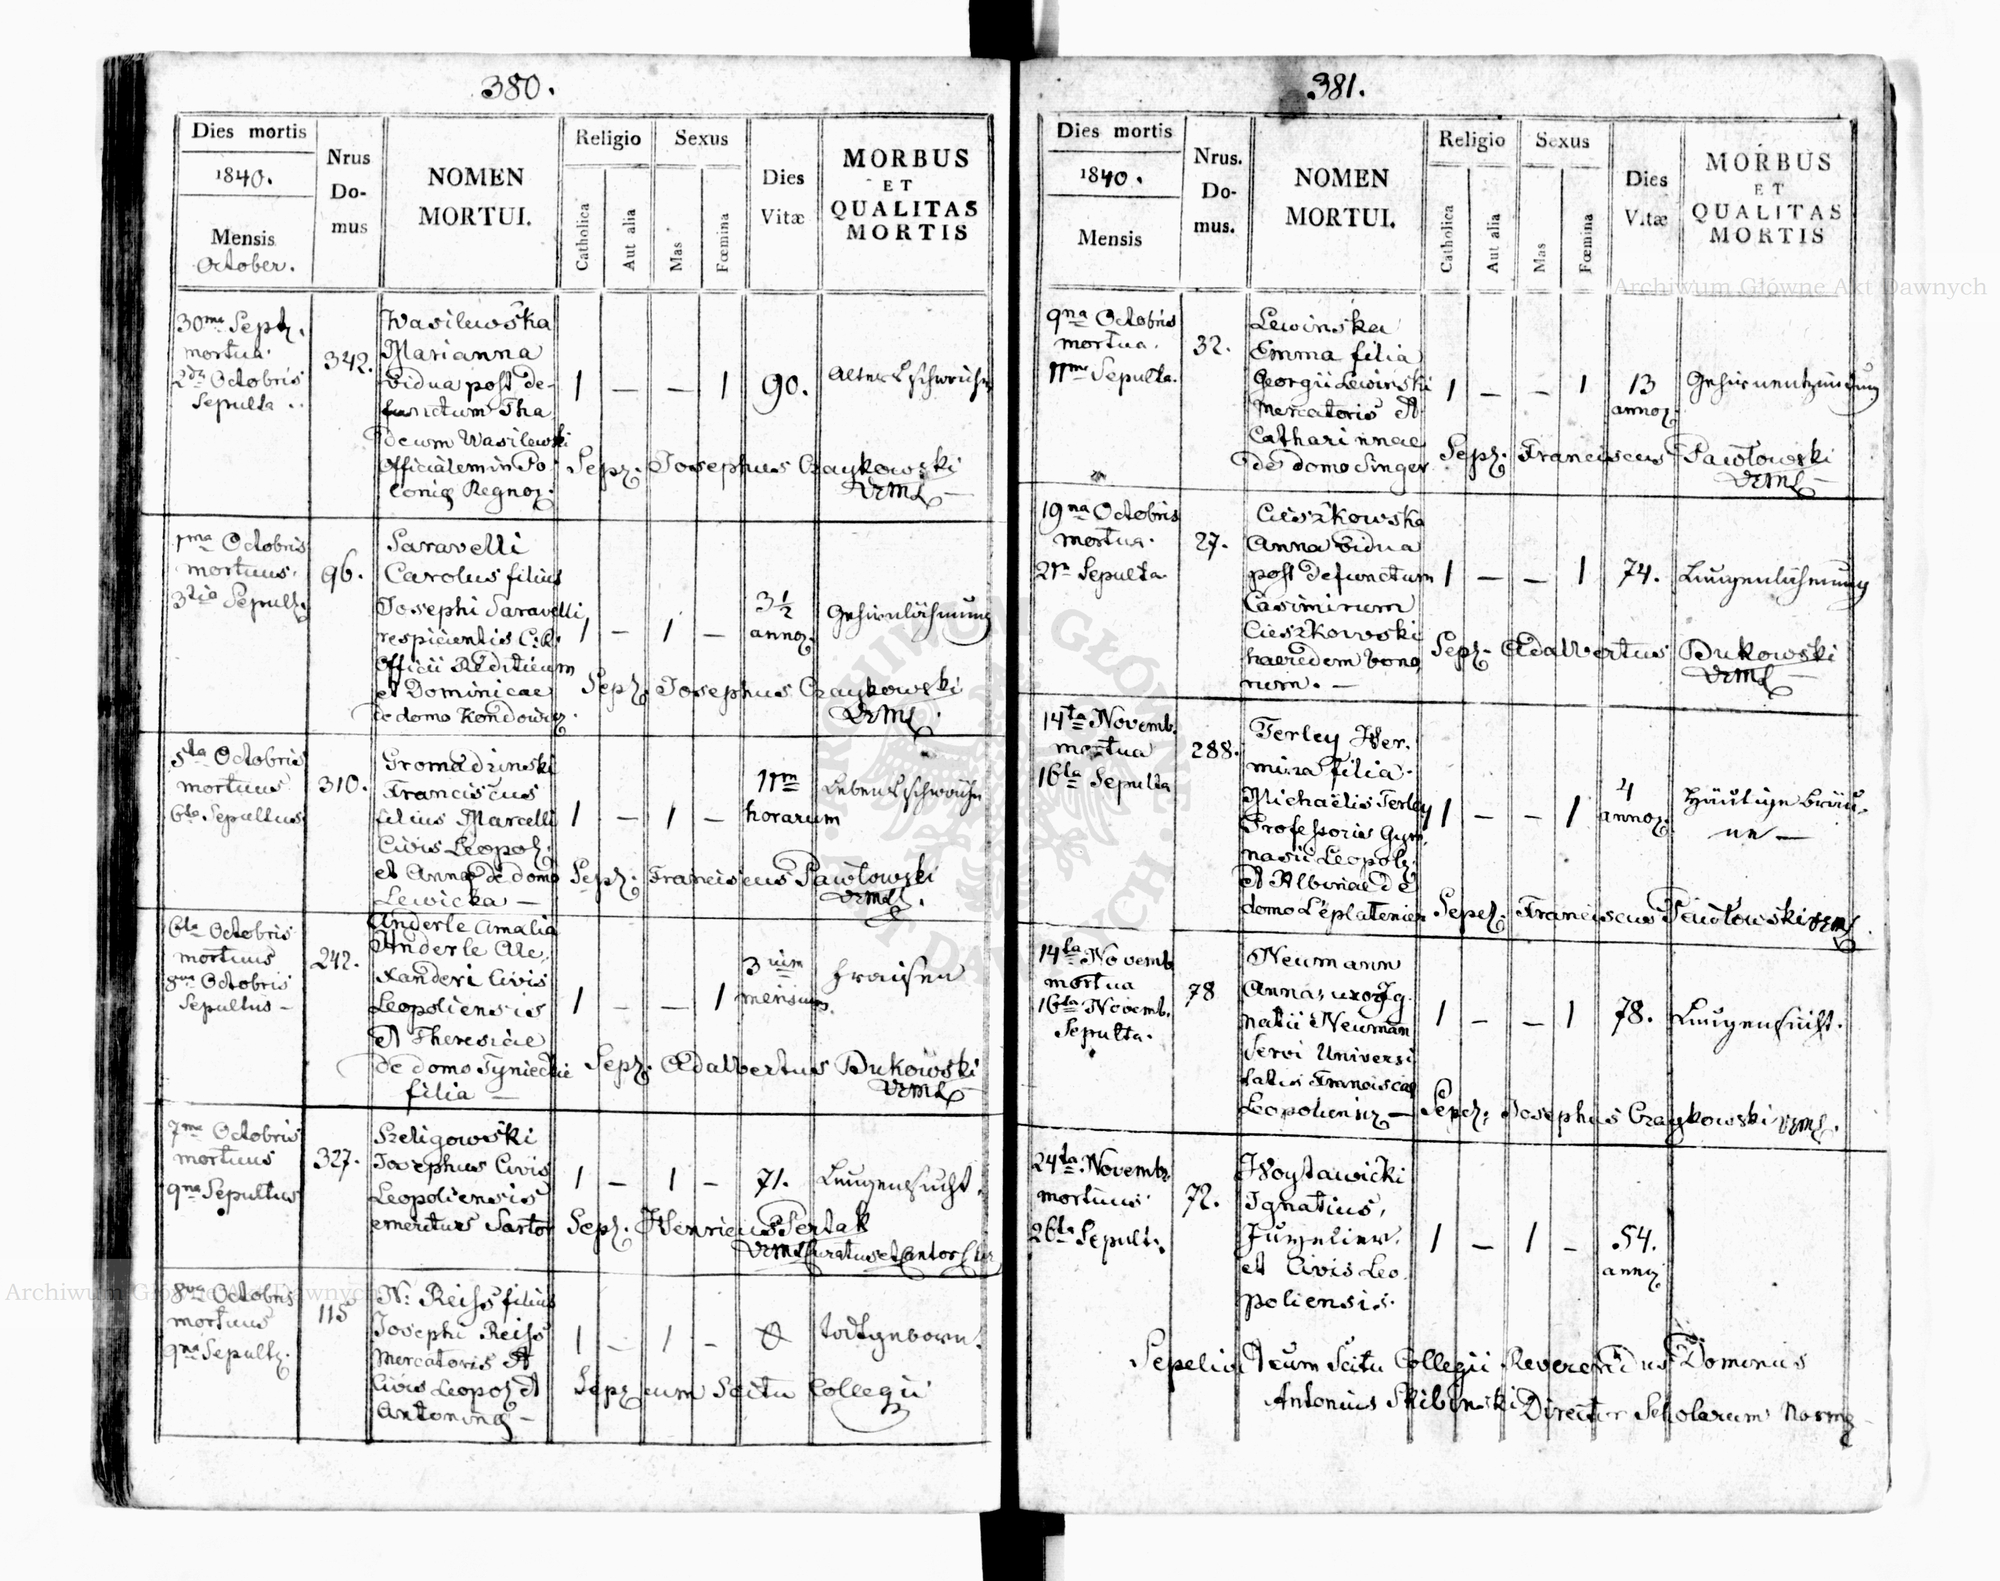 380.
Dies mortis
1840.
Mensis
October.
Nrus
Do-
mus
NOMEN
MORTUI.
Religio
Catholica
Aut alia
Sexus
Mas
Fœmina
Dies
Vitæ
MORBUS
ET
QUALITAS
MORTIS
30ma Sept.
mortua
2da Octobris
Sepulta
342.
Wasilewska
Marianna
vidua post de-
functum Tha
deum Wasilewski
Officialem in Po
Regnoz.
1 — — 1 90.
Alterschwäche
Sepz. Josephus Czaykowski
VRML
1ma Octobris
mortuus.
3tia Sepult.
96.
Saravelli
Carolus filius
Josephi Saravelli
respicientis C: R.
Officii Redituum
et Dominicae
de domo
1 — 1 — 3½
annoz.
Gehirnlähmung
Sepz. Josephus Czaykowski
VRML.
5ta Octobris
mortuus
6ta Sepultus
310.
Gromadzinski
Franciscus
filius Marcelli
Civis Leopol.
et Annæ de domo
Lewicka —
1 — 1 — 11m
horarum
Lebensschwäche
Sepz. Franciscus Pawłowski
VRML.
6ta Octobris
mortuus
8va Octobris
Sepultus —
242.
Anderle Amalia
Anderle Ale,
xanderi Civis
Leopoliensis
et Theresiae
de domo Tyniecki
filia —
1 — — 1 3uim
mensium.
Fraisen
Sepz. Adalbertus Bukowski
VRML —
7ma Octobris
mortuus
9na Sepultus
327.
Szeligowski
Josephus Civis
Leopoliensis
emeritus Sartor
1 — 1 — 71.
Lungensucht.
Sepz. Henricus Pertak
VRML Curatus et Cantor
8va Octobris
mortuus
9na Sepultz.
115
N: Reiss filius
Josephi Reiss
Mercatoris et
Civis Leopoz et
Antoninæ —
1 — 1 — 0
todtgeboren.
Sepz cum Scitu Collegii
381.
Dies mortis
1840.
Mensis
Nrus.
Do-
mus.
NOMEN
MORTUI.
Religio
Catholica
Aut alia
Sexus
Mas
Fœmina
Dies
Vitæ
MORBUS
ET
QUALITAS
MORTIS
9na Octobris
mortua.
11ma Sepulta.
32.
Lewinska
Emma filia
Georgii Lewinski
Mercatoris et
Catharinnae
de domo Singer
1 — — 1 13
annoz
Gehirnentzündung
Sepz. Franciscus Pawłowski
VRML —
19na Octobris
mortua.
21a Sepulta
27.
Cieszkowska
Anna vidua
post defunctum
Casimirum
Cieszkowski
haeredem bono
rum. —
1 — — 1 74.
Lungenlähmung
Sepz. Adalbertus Bukowski
VRML —
14ta Novemb.
mortua
16ta Sepulta
288.
Terley Her.
mina filia
Michaëlis Terley
Professoris Gym,
nasii Leopolz.
et Albinae de
domo Leplatenier
1 — — 1 4
annoz.
Häutige Bräu-
ne —
Sepez. Franciscus Pawłowski VRML.
14ta Novemb
mortua
16ta Novemb.
Sepulta.
78
Neumann
Anna, uxor Ig.
natii Neuman
Servi Universi
tatis Franciscae
Leopoliensz —
1 — — 1 78.
Lungensucht.
Sepez. Josephus Czaykowski VRML.
24ta Novemb.
mortuus
26ta Sepult.
72.
Woytawicki
Ignatius,
Juvelier.
et Civis Leo.
poliensis.
1 — 1 — 54.
annoz
Sepelivit cum Scitu Collegii Reverendus Dominus
Antonius Skibinski Director Scholarum Normz
Archiwum Główne Akt Dawnych
Archiwum Główne Akt Dawnych
ARCHIWUM GŁÓWNE AKT DAWNYCH